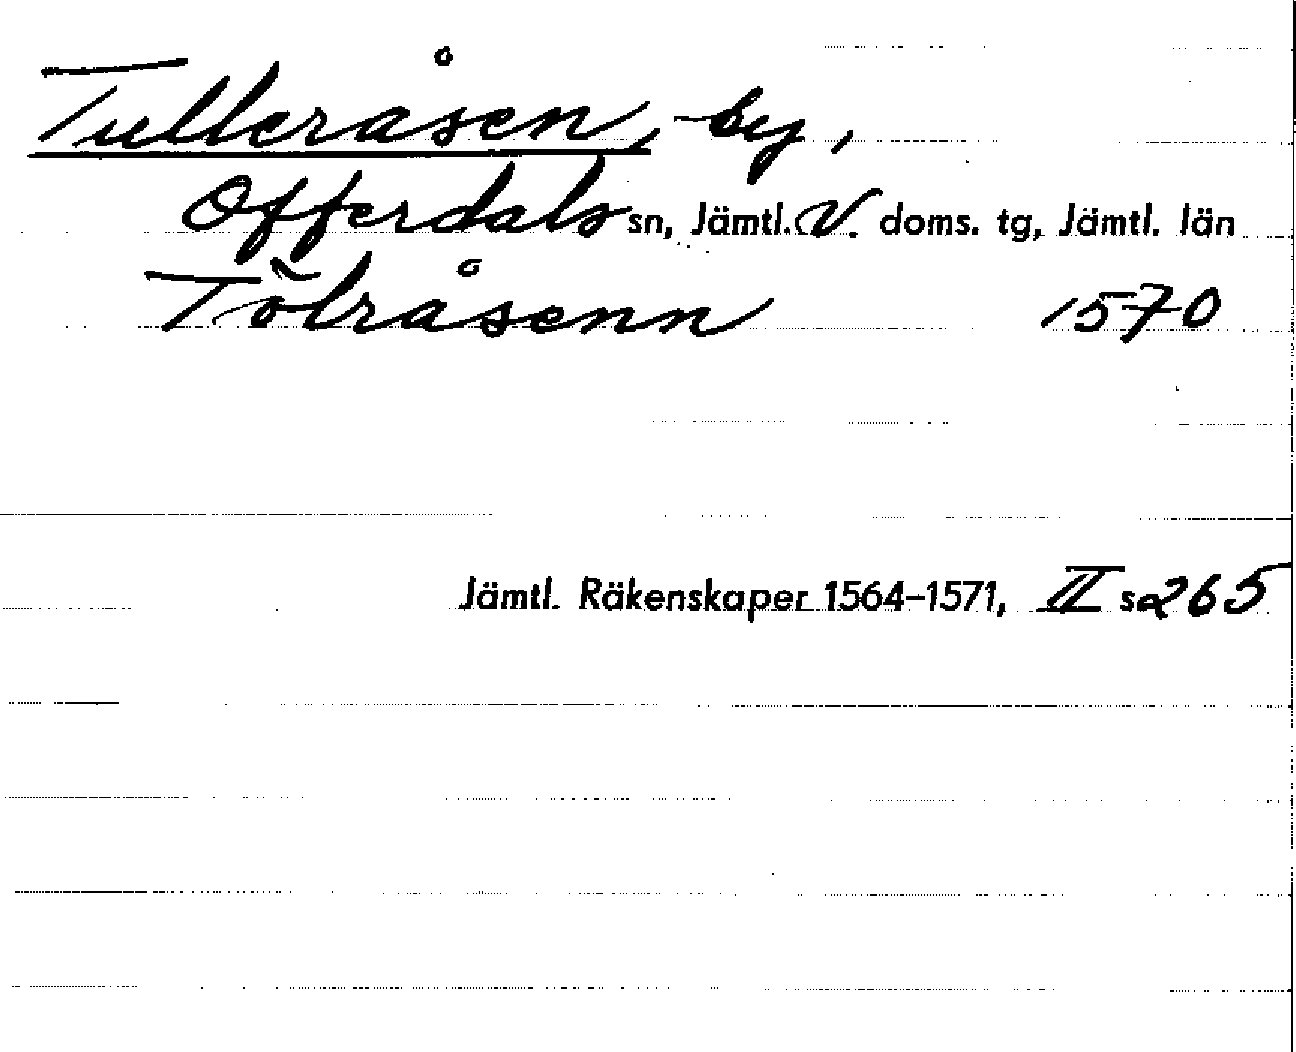 Tulleråsen, by,
Offerdals sn, Jämtl. V. doms. tg, Jämtl. län
Tõlråsenn 1570
Jämtl. Räkenskaper 1564-1571, II s 265